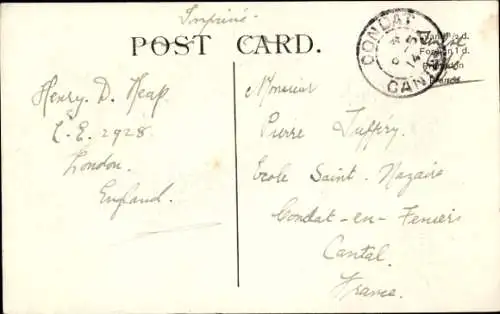 Imprimé.
POST CARD.
CONDAT
CANTAL
Henry. D. Heap
C.E. 2928.
London.
England.
Monsieur
Pierre Jufféry.
Ecole Saint. Nazaire
Condat-en-Feniers
Cantal.
France.